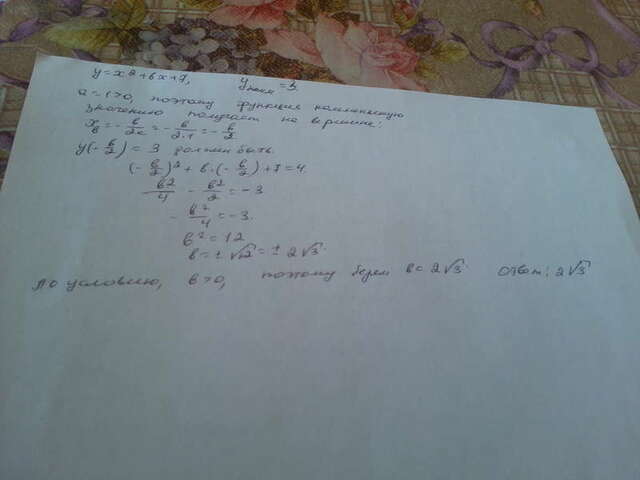 y=x²+bx+7, y наим = 3.
a=1>0, поэтому функция наименьшую
значению получает на вершине:
x_в = -b/2a = -b/2·1 = -b/2
y(-b/2) = 3 должен быть.
(-b/2)² + b·(-b/2) + 7 = 4
b²/4 - b²/2 = -3
- b²/4 = -3.
b² = 12
b = ± √12 = ± 2√3
По условию, b>0, поэтому берем b = 2√3. Ответ: 2√3